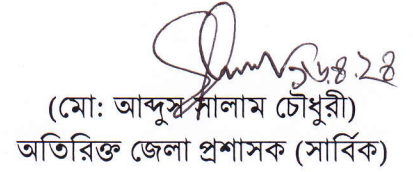 ১৬.৪.২৪
(মো: আব্দুস সালাম চৌধুরী)
অতিরিক্ত জেলা প্রশাসক (সার্বিক)